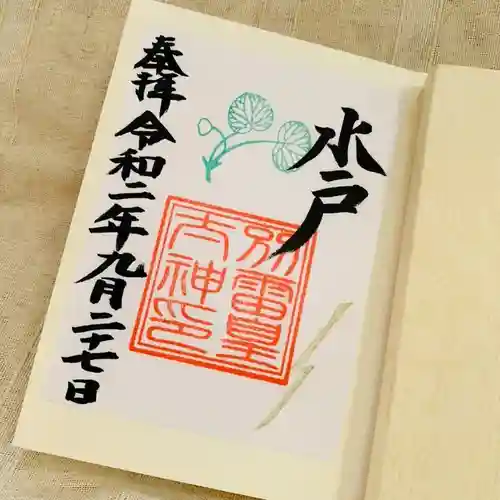 水戸
別雷皇
太神印
奉拝 令和二年九月二十七日